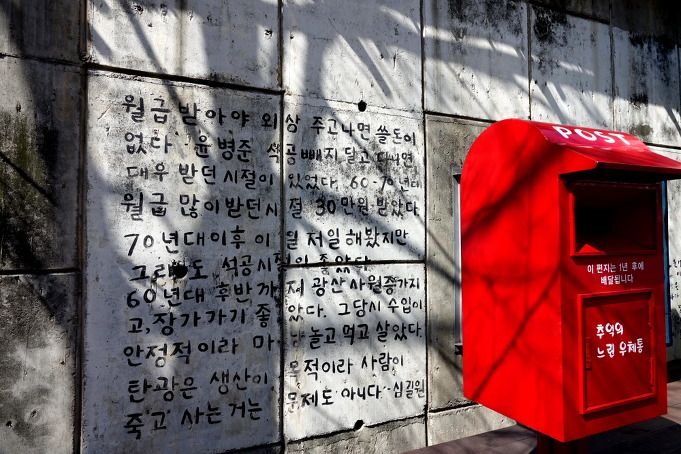 월급 받아야 외상 주고나면 쓸돈이
없다 - 윤병준 석공빼지 달고 다니면
대우 받던 시절이 있었다. 60-70년대
월급 많이받던시절 30만원 받았다
70년대이후 이일저일 해봤지만
그래도 석공시절이 좋았다
60년대 후반까지 광산 사원증가지
고, 장가가기 좋았다. 그당시 수입이
안정적이라 다 놀고 먹고 살았다.
탄광은 생산이 목적이라 사람이
죽고 사는거는 문제도 아니다 - 심길원
POST
이 편지는 1년 후에
배달됩니다
추억의
느린 우체통